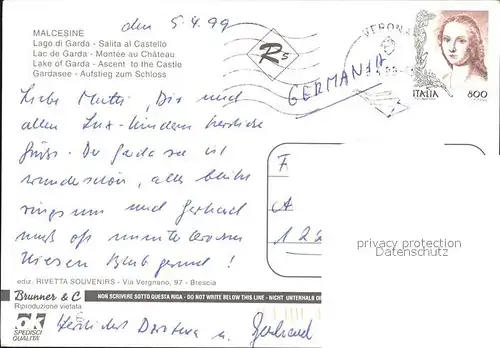 MALCESINE
Lago di Garda - Salita al Castello
Lac de Garda - Montée au Château
Lake of Garda - Ascent to the Castle
Gardasee - Aufstieg zum Schloss
den 5.4.99
R5
VERONA
ITALIA 800
GERMANIA
Liebe Mutti, Dir und
allen herzliche
Grüße. Der Gardasee ist
wunderschön, alles blüht
rings um und Gerhard
muß oft
Niesen. Bleib gesund!
F
A
122
privacy protection
Datenschutz
ediz. RIVETTA SOUVENIRS - Via Vergnano, 97 - Brescia
Brunner & C
NON SCRIVERE SOTTO QUESTA RIGA - DO NOT WRITE BELOW THIS LINE - NICHT UNTERHALB
Riproduzione vietata
OK
SPEDISCI
QUALITA'
Herzlichst Dorothea u. Gerhard